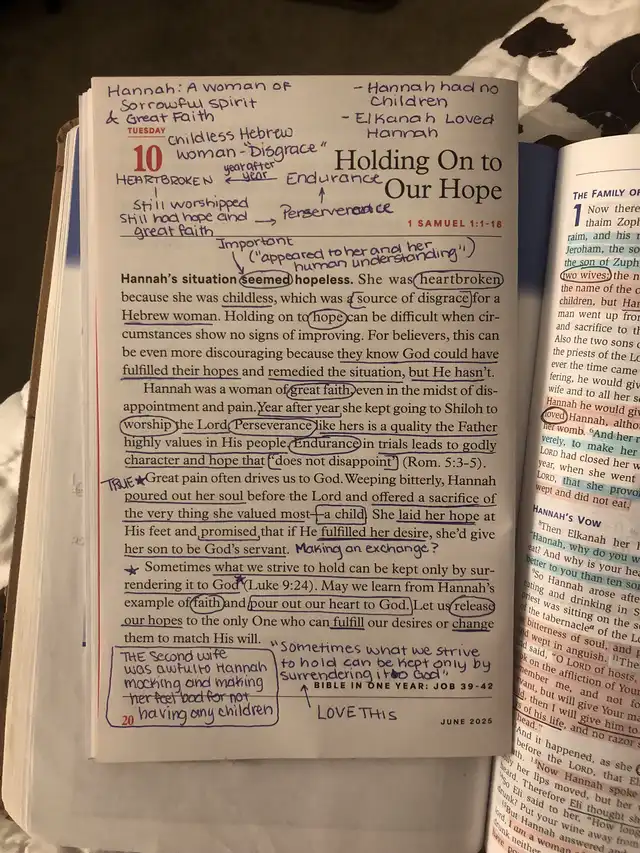 Hannah: A woman of
Sorrowful spirit
& Great Faith
- Hannah had no
children
- Elkanah Loved
Hannah
TUESDAY
10
childless Hebrew
woman - "Disgrace"
HEARTBROKEN
year after
year
Endurance
Still worshipped
still had hope and
great faith
Perserverance
Holding On to
Our Hope
1 SAMUEL 1:1-18
Important
("appeared to her and her
human understanding")
Hannah's situation seemed hopeless. She was heartbroken
because she was childless, which was a source of disgrace for a
Hebrew woman. Holding on to hope can be difficult when cir-
cumstances show no signs of improving. For believers, this can
be even more discouraging because they know God could have
fulfilled their hopes and remedied the situation, but He hasn't.
Hannah was a woman of great faith even in the midst of dis-
appointment and pain. Year after year she kept going to Shiloh to
worship the Lord. Perseverance like hers is a quality the Father
highly values in His people. Endurance in trials leads to godly
character and hope that "does not disappoint" (Rom. 5:3–5).
TRUE
Great pain often drives us to God. Weeping bitterly, Hannah
poured out her soul before the Lord and offered a sacrifice of
the very thing she valued most—a child. She laid her hope at
His feet and promised that if He fulfilled her desire, she'd give
her son to be God's servant. Making an exchange?
Sometimes what we strive to hold can be kept only by sur-
rendering it to God (Luke 9:24). May we learn from Hannah's
example of faith and pour out our heart to God. Let us release
our hopes to the only One who can fulfill our desires or change
them to match His will.
THE Second wife
was awful to Hannah
mocking and making
her feel bad for not
having any children
"Sometimes what we strive
to hold can be kept only by
surrendering it to God"
BIBLE IN ONE YEAR: JOB 39-42
LOVE THIS
20
JUNE 2025
THE FAMILY OF
1 Now there
thaim Zoph
raim, and his n
Jeroham, the so
the son of Zuph
two wives: the n
the name of the o
children, but Han
man went up from
and sacrifice to th
Also the two sons o
the priests of the L
ever the time came
fering, he would giv
wife and to all her s
Hannah he would giv
loved Hannah, altho
her womb. And her r
verely, to make her
LORD had closed her w
year, when she went
LORD, that she provo
wept and did not eat.
HANNAH'S VOW
Then Elkanah her h
"Hannah, why do you w
eat? And why is your hea
better to you than ten so
So Hannah arose after
ating and drinking in S
priest was sitting on the se
of the tabernacle of the Lo
bitterness of soul, and
wept in anguish.
said, "O LORD of hosts,
ok on the affliction of You
member me, and not fo
vant, but will give Your ma
then I will give him to
of his life, and no razor
head."
And it happened, as she
before the LORD, that E
Now Hannah spoke
her lips moved, but her v
heard. Therefore Eli thought sh
So Eli said to her, "How long
drunk? Put your wine away from
But Hannah answered and
I am a woman
drunk neither